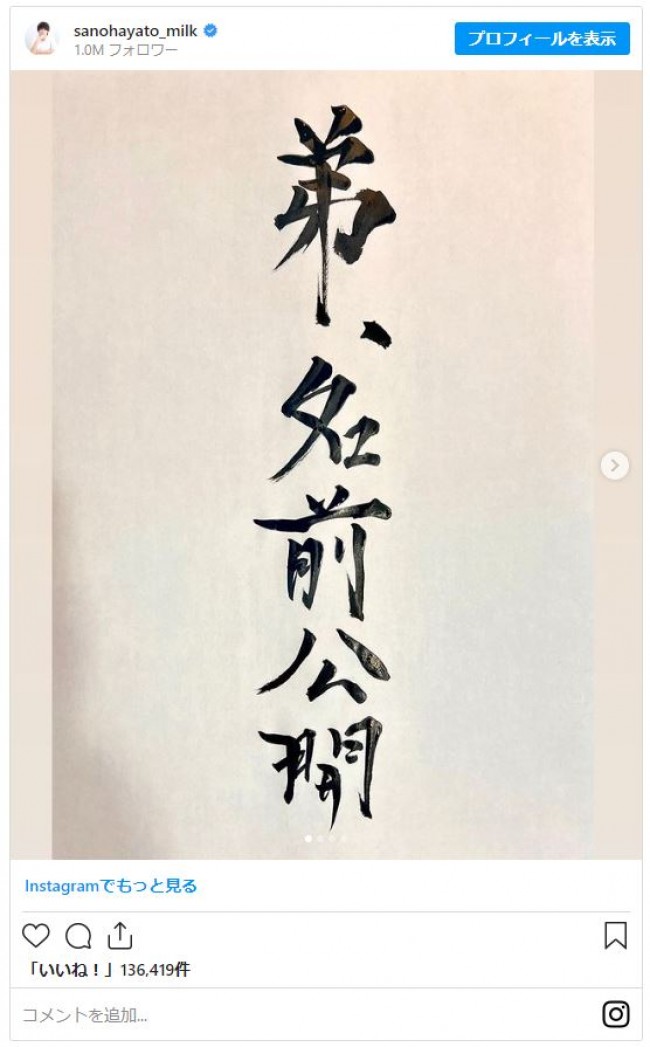 sanohayato_milk
1.0M フォロワー
プロフィールを表示
弟、名前公開
Instagramでもっと見る
「いいね！」136,419件
コメントを追加...